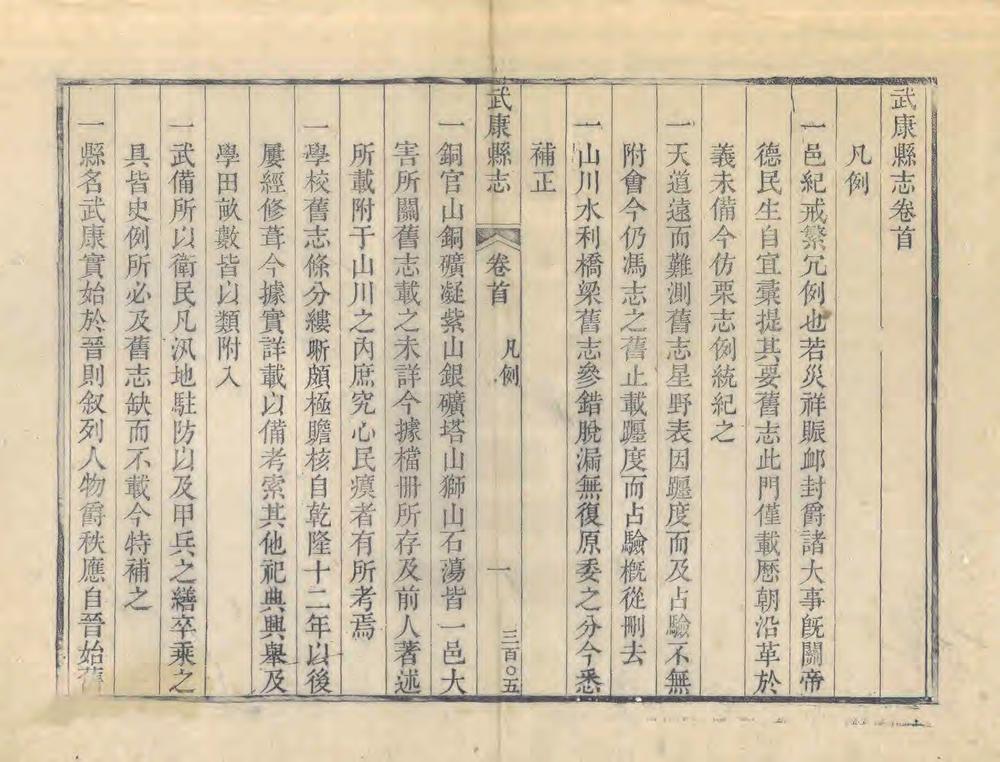 武康縣志卷首
凡例
一邑紀戒繁冗例也若災祥賑卹封爵諸大事旣關帝
德民生自宜彙提其要舊志此門僅載歷朝沿革於
義未備今仿栗志例統紀之
一天道遠而難測舊志星野表因躔度而及占驗不無
附會今仍馮志之舊止載躔度而占驗槪從刪去
一山川水利橋梁舊志參錯脫漏無復原委之分今悉
補正
武康縣志 卷首 凡例 一 三百〇五
一銅官山銅礦凝紫山銀礦塔山獅山石蕩皆一邑大
害所關舊志載之未詳今據檔冊所存及前人著述
所載附于山川之內庶究心民瘼者有所考焉
一學校舊志條分縷晰頗極贍核自乾隆十二年以後
屢經修葺今據實詳載以備考索其他祀典興舉及
學田畝數皆以類附入
一武備所以衛民凡汛地駐防以及甲兵之繕卒乘之
具皆史例所必及舊志缺而不載今特補之
一縣名武康實始於晉則叙列人物爵秩應自晉始舊